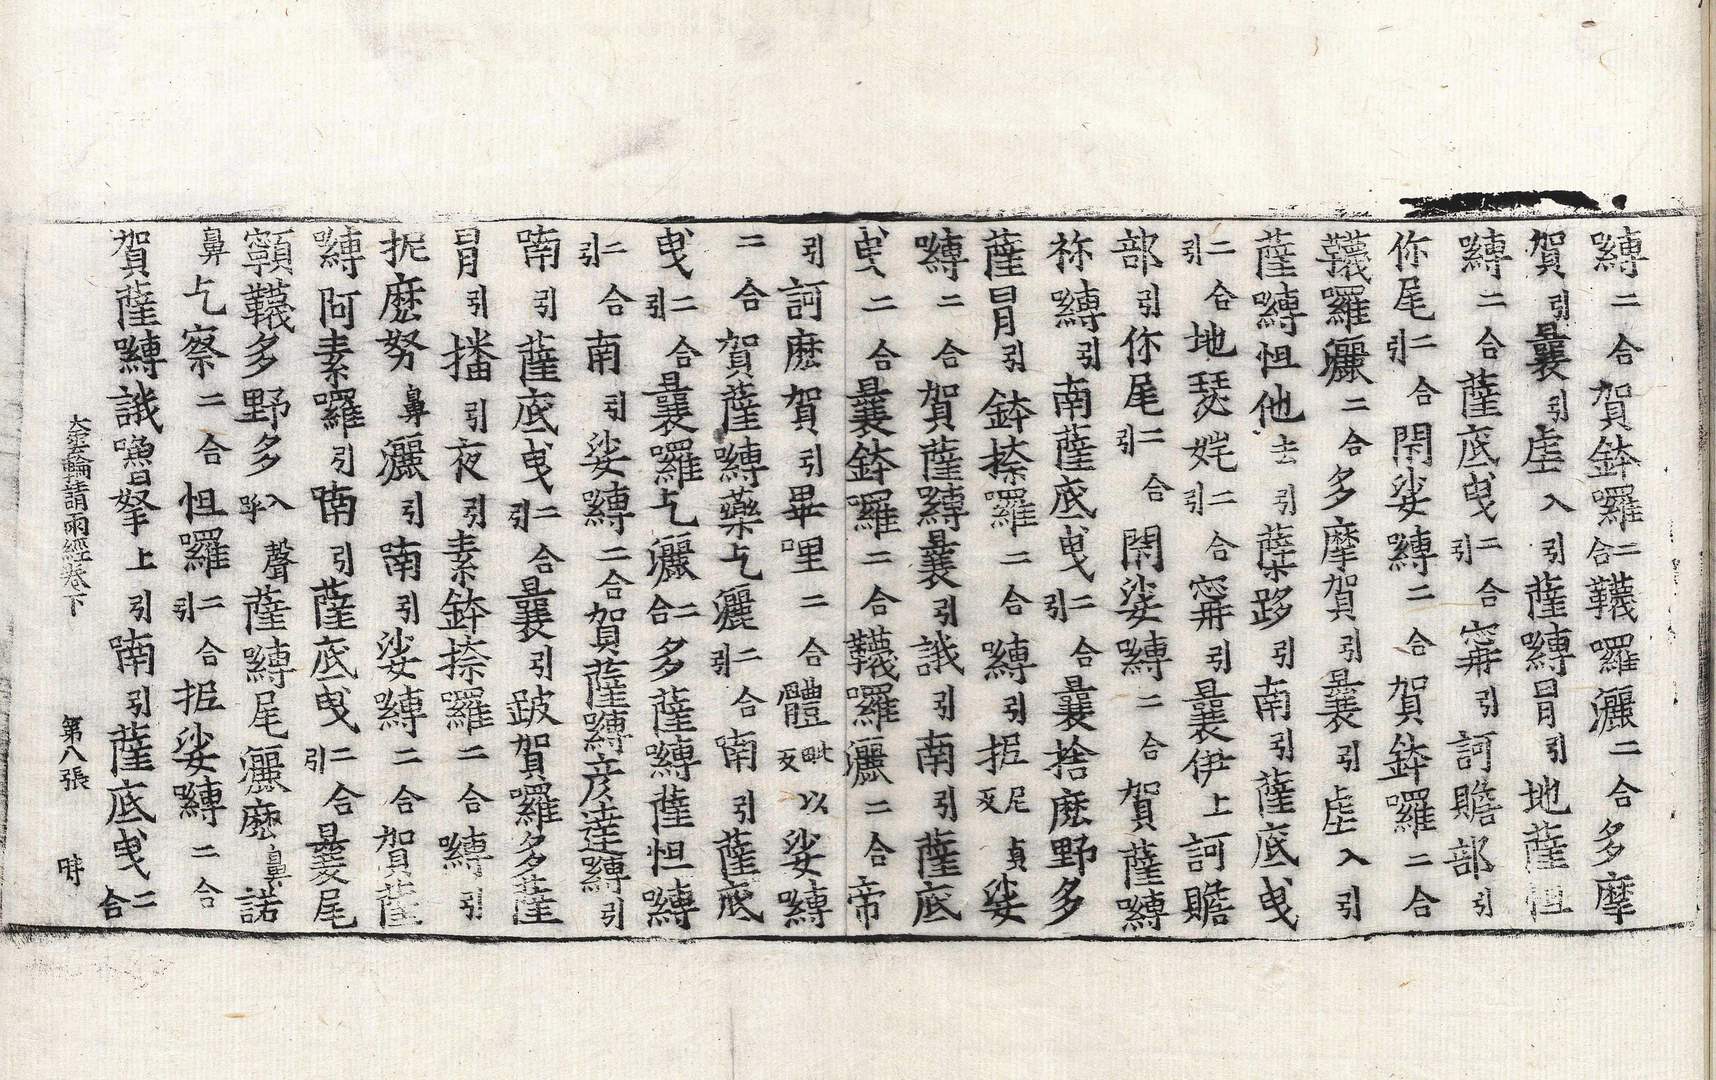 嚩二合賀鉢囉二合韈囉灑二合多摩
賀引曩引虐入引薩嚩冒引地薩怛
嚩二合薩底曳二合引寗引訶贍部引
你尾二合引閇娑嚩二合賀鉢囉二合
韈囉灑二合多摩賀引曩引虐入引
薩嚩怛他去引蘖跢引南引薩底曳
二合引地瑟姹二合引寗引曩伊上訶贍
部引你尾二合引閇娑嚩二合賀薩嚩
祢嚩引南薩底曳二合引曩捨麽野多
薩冒引鉢捺囉二合嚩引抳尼貞反娑
嚩二合賀薩嚩曩引誐引南引薩底
曳二合曩鉢囉二合韈囉灑二合帝
引訶麽賀引畢哩二合體毗以反娑嚩
二合賀薩嚩藥乞灑二合引喃引薩底
曳二合引曩囉乞灑二合多薩嚩薩怛嚩
二合引南引娑嚩二合賀薩嚩彦達嚩引
喃引薩底曳二合引曩引跛賀囉多薩
冒引播引夜引素鉢捺囉二合嚩引
抳麽努鼻灑引喃引娑嚩二合賀薩
嚩阿素囉引喃引薩底曳二合引曩尾
額韈多野多入呼聲薩嚩尾灑麽鼻諾
鼻乞察二合怛囉二合引抳娑嚩二合
賀薩嚩誐嚕拏上引喃引薩底曳二合
大雲輪請雨經卷下　第八張　時